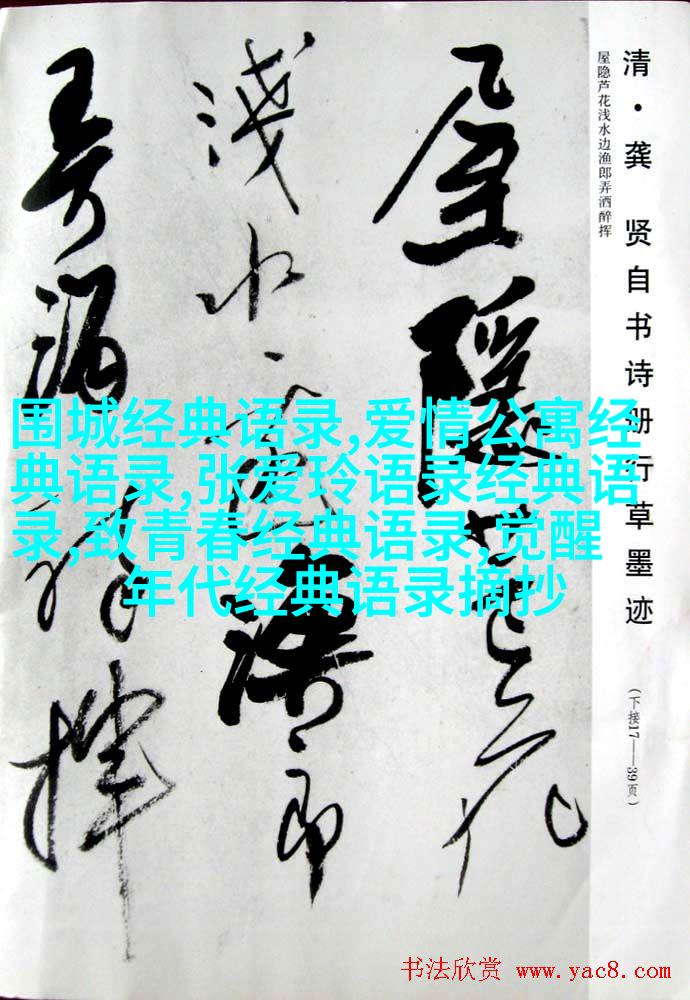 清·龚 贤自书诗册行草墨迹
(下接17——39页)
屋隐芦花浅水边渔郎弄洒醉挥
屋隱芦花
淺水邊漁郎
弄酒醉揮
围城经典语录,爱情公寓经
典语录,张爱玲语录经典语
录,致青春经典语录,觉醒
年代经典语录摘抄
书法欣赏 www.yac8.com